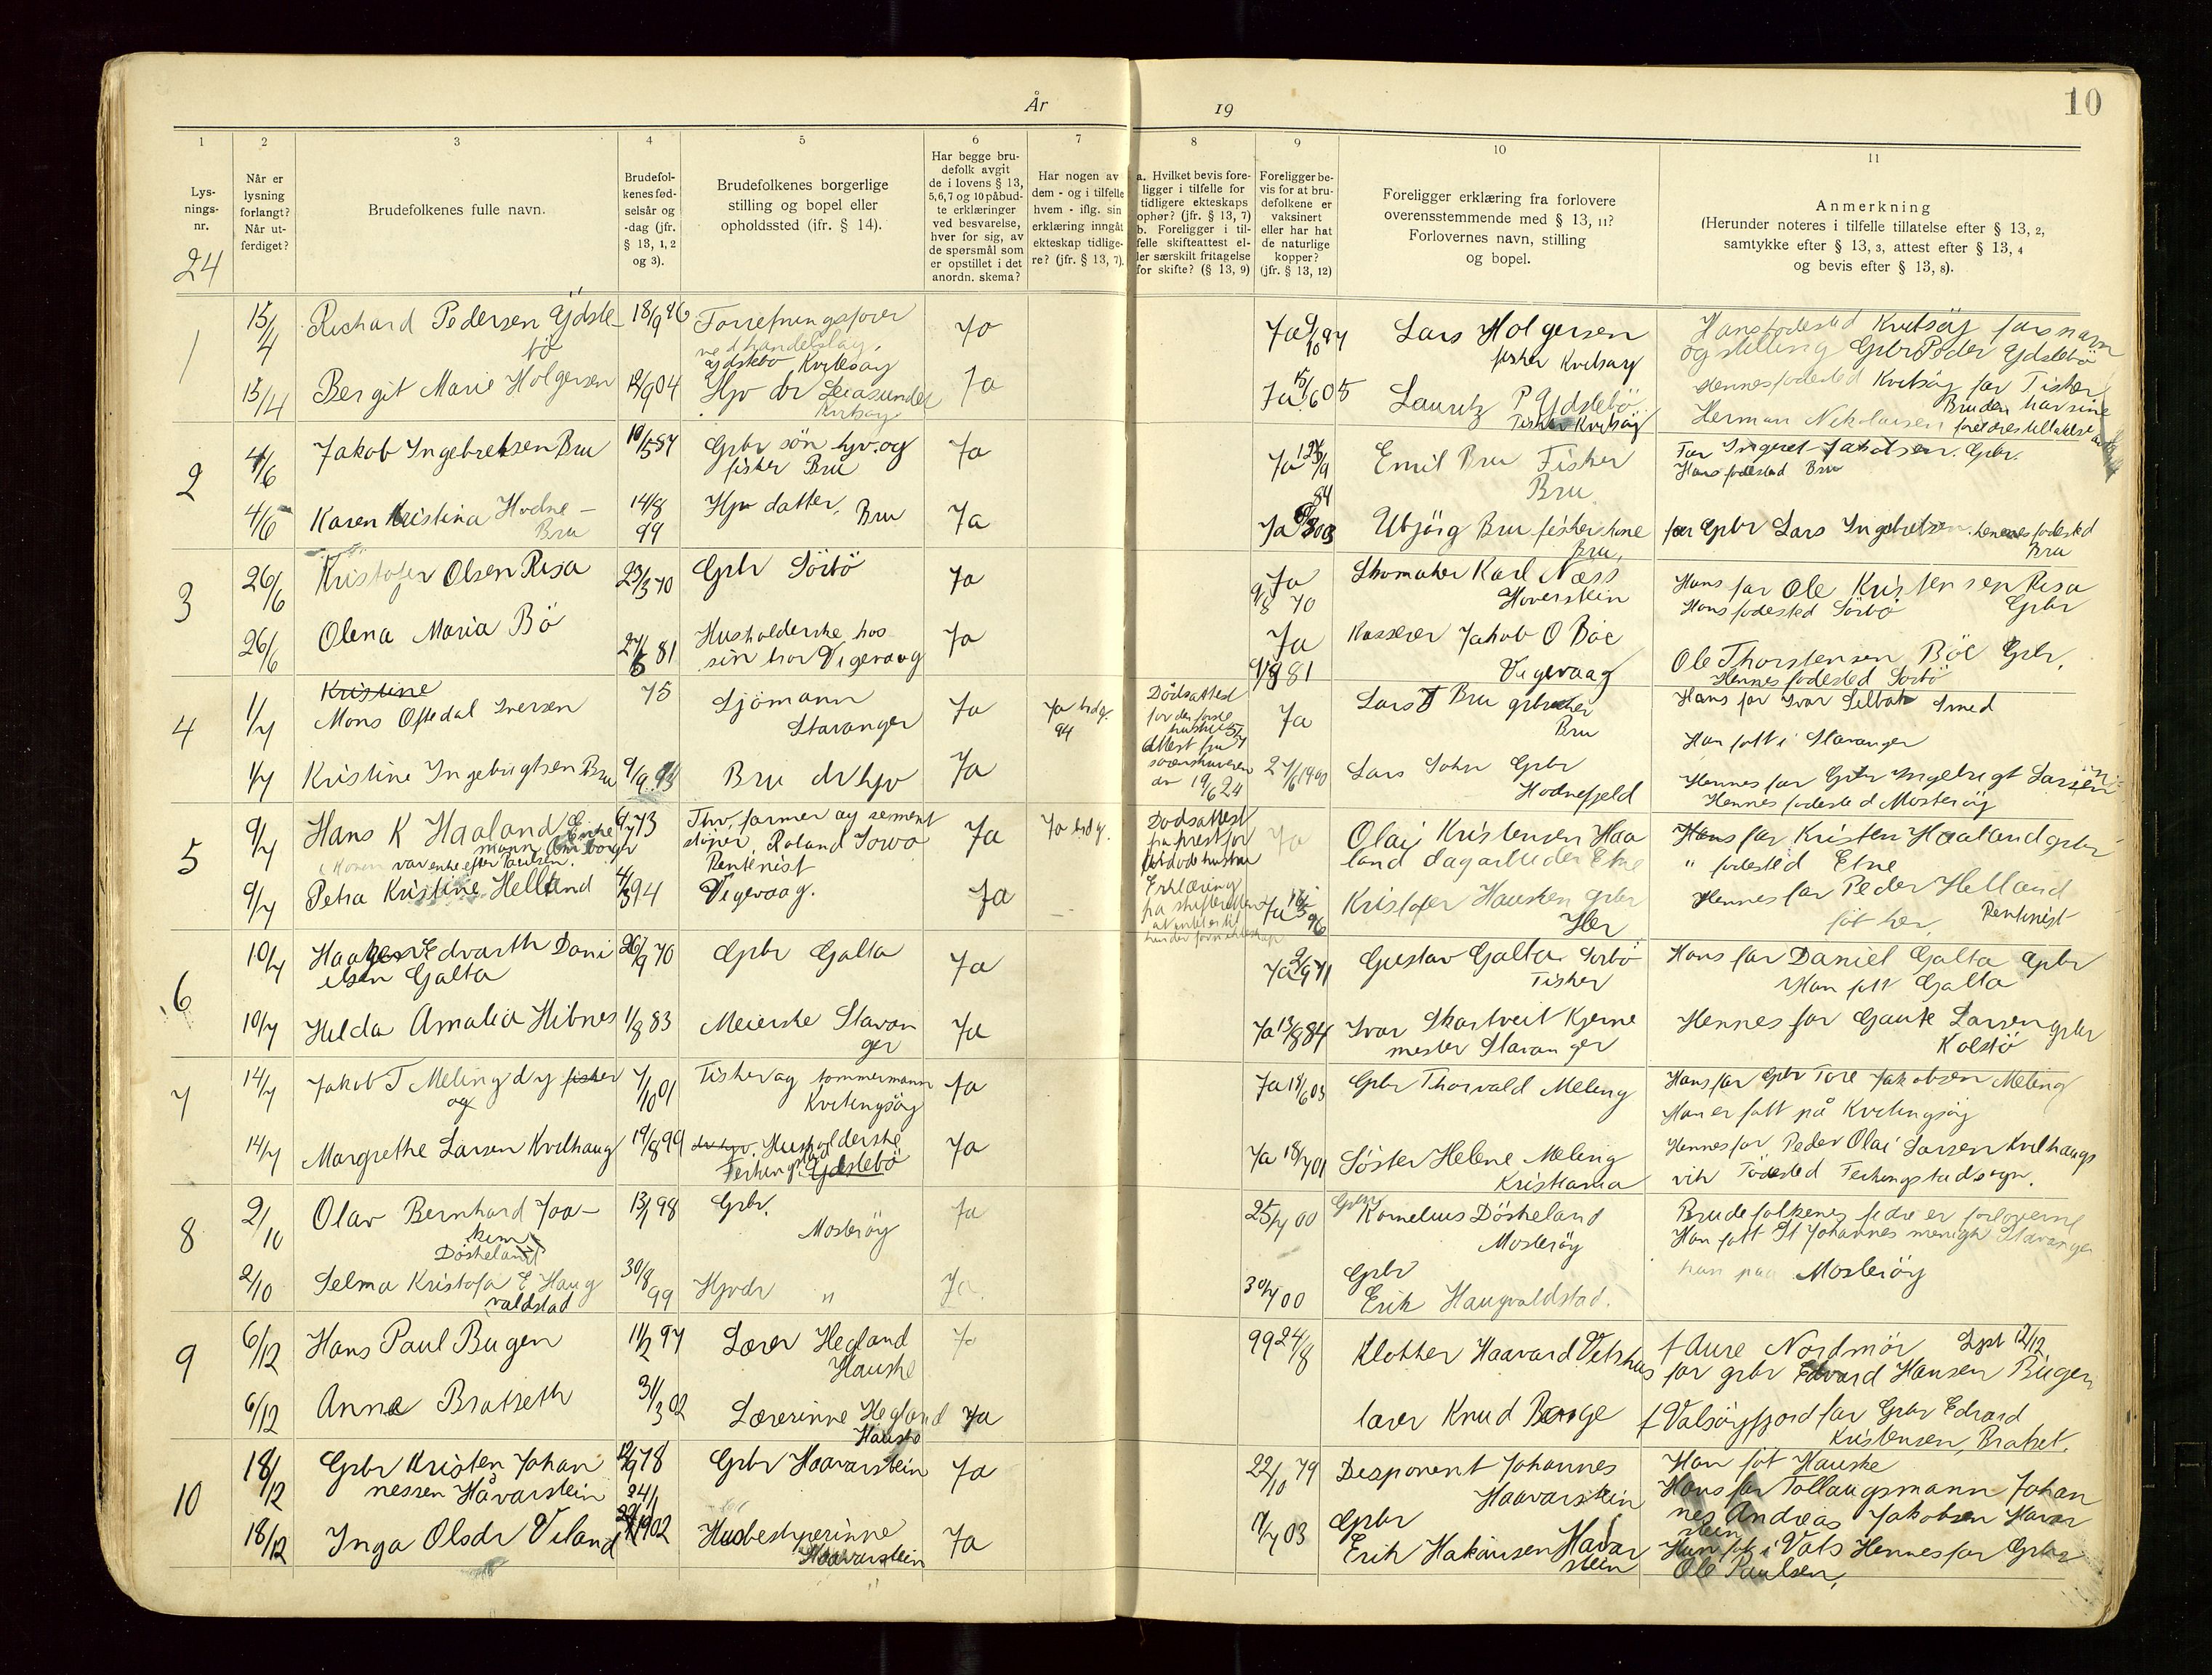 År
19
10
1
2
3
4
5
6
7
8
9
10
11
Lys-
nings-
nr.
24
Når er
lysning
forlangt?
Når ut-
ferdiget?
Brudefolkenes fulle navn.
Brudefol-
kenes fød-
selsår og
-dag (jfr.
§ 13, 1, 2
og 3).
Brudefolkenes borgerlige
stilling og bopel eller
opholdssted (jfr. § 14).
Har begge bru-
defolk avgit
de i lovens § 13,
5,6,7 og 10 påbud-
te erklæringer
ved besvarelse,
hver for sig, av
de spørsmål som
er opstillet i det
anordn. skema?
Har nogen av
dem - og i tilfelle
hvem - iflg. sin
erklæring inngåt
ekteskap tidlige-
re? (jfr. § 13, 7).
a. Hvilket bevis fore-
ligger i tilfelle for
tidligere ekteskaps
ophør? (jfr. § 13, 7)
b. Foreligger i til-
felle skifteattest el-
ler særskilt fritagelse
for skifte? (§ 13, 9)
Foreligger be-
vis for at bru-
defolkene er
vaksinert
eller har hat
de naturlige
kopper?
(jfr. § 13, 12)
Foreligger erklæring fra forlovere
overensstemmende med § 13, 11?
Forlovernes navn, stilling
og bopel.
Anmerkning
(Herunder noteres i tilfelle tillatelse efter § 13, 2,
samtykke efter § 13, 3, attest efter § 13, 4
og bevis efter § 13, 8).
1
15/4
Richard Pedersen Ydste-
bö
18/9 96
Forretningsfører
ved handelslag,
Ydstebö Kvitsøy
Ja
Ja 9/10 97
Lars Holgersen
fisker Kvitsøy
Hans fodested Kvitsöy fars navn
og stilling Grbr Peder Ydstebö
15/4
Bergit Marie Holgersen
12/9 04
Hjv dr Leiasundet
Kvitsøy
Ja
Ja 15/6 05
Lauritz P Ydstebö
Fisker Kvitsöy
Hennes fodested Kvitsöy far Fisker
Herman Nikolaisen
Bruden har sine
foreldres tillatelse
2
4/6
Jakob Ingebretsen Bru
10/5 87
Grbr sön hjv. og
fisker Bru
Ja
Ja
Emil Bru Fisker
Bru
Far Ingeret Jakobsen. Grbr.
Hans fodested Bru
4/6
Karen Kristina Hodne -
Bru
14/8
99
Hjv datter, Bru
Ja
Ja
Utjörg Bru fisker kone
Bru.
far Grbr Lars Ingebretsen. hennes fodested
Bru
3
26/6
Kristofer Olsen Risa
23/3 70
Grbr Sörbö
Ja
Ja
9/8 70
Skomaker Karl Næss
Hoverstein
Hans far Ole Kristensen Risa
Hans fodested Sörbö Grbr
26/6
Olena Maria Bö
27/6 81
Husholderske hos
sin bror Vigevaag
Ja
Ja
9/9 81
Kasserer Jakob O Böe
Vigevaag
Ole Thorstensen Böe Grbr.
Hennes fodested Sörbö
4
1/7
Kristine
Mons Oftedal Iversen
75
Sjömann
Stavanger
Ja
Ja brdg.
94
Dödsattest
for den forste
hustru
Attest fra
sorenskriveren
dr 19/6 24
Ja
Lars T Bru grbruker
Bru
Hans far Ivar Selbak Smed
Han fott i Stavanger
1/7
Kristine Ingebrigtsen Bru
9/9 93
Bru dr hjv
Ja
27/6 1900
Lars Sohn Grbr
Hodnefjeld
Hennes far Grbr Ingebrigt Larsen
Hennes fodested Mosteröy
5
9/7
Hans K Haaland E
Enke
mann
Konen var enke efter Paulsen.
6/7 73
Thv. farmer og sement
støper, Roland Iowa
Ja
Ja brdg.
Dodsattest
fra prest for
Ja
Olai Kristensen Haa
land dagarbeider Etne
Hans far Kristen Haaland grbr
" fodested Etne
9/7
Petra Kristine Helland
4/3 94
Rentenist
Vigevaag.
Ja
Erklæring
fra skifteretten
Ja
Kristofer Hausken Grbr
Her
Hennes far Peder Helland
föt her, Rentenist
6
10/7
Haaken Edvarth Dani
elsen Galta
26/9 70
Grbr Galta
Ja
Ja 2/9 71
Gustav Galta Sörbö
Fisker
Hans far Daniel Galta Grbr
Han fött Galta
10/7
Hilda Amalia Hibnes
1/8 83
Meierske Stavan
ger
Ja
Ja 13/8 84
Ivar Skartveit Kjerne
mester Stavanger
Hennes far Gaute Larsen grbr
Kolstö
7
14/7
Jakob T Meling dy fisker
og
7/10 01
Fisker og tommermann
Kvitingsöy
Ja
Ja 18/6 03
Grbr Thorvald Meling
Hans far Grbr Tore Jakobsen Meling
Han er fött på Kvitingsöy
14/7
Margrethe Larsen Kvilhaug
19/8 99
dr hjv. Husholderske
Ferkingstad Ydstebö
Ja
Ja 18/7 01
Söster Helene Meling
Kristiania
Hennes far Peder Olai Larsen Kvilhaugs
vik Födested Ferkingstad sogn.
8
2/10
Olav Bernhard Joa-
kim
Döskeland
13/1 98
Grbr.
Mosteröy
Ja
25/7 00
Grbr
Kornelius Döskeland
Mosteröy
Brudefolkenes fedre er forloverne
Han fött St Johannes menigh Stavanger
2/10
Selma Kristofa E Haug
valdstad
30/8
99
Hjvdr "
Ja.
30/7 00
Grbr
Erik Haugvaldstad.
hun paa Mosteröy
9
6/12
Hans Paul Bugen
11/2 97
Lærer Hegland
Hauske
Ja
99 24/8
Klokker Haavard Vetrhus
f Aure Nordmör Lyst 12/12
far grbr Edvard Hansen Bügen
6/12
Anna Bratseth
31/3 02
Lærerinne Hegland
Hauske
Ja
lærer Knud Berge
f Valsöyfjord far Grbr Edvard
Kristensen, Bratset.
10
18/12
Grbr Kristen Johan
nessen Håvarstein
12/9 78
Grbr Haavarstein
Ja
22/10 79
Disponent Johannes
Haavarstein
Han föt Hauske
Hans far Tollaugsmann Johan
nes Andreas Jakobsen Havar
stein
18/12
Inga Olsdr Viland
24/1
1902
Husbestyrerinne
Haavarstein
Ja
11/7 03
Grbr
Erik Hakansen Havar
stein
Hun föt i Vats Hennes far Grbr
Ole Paulsen,